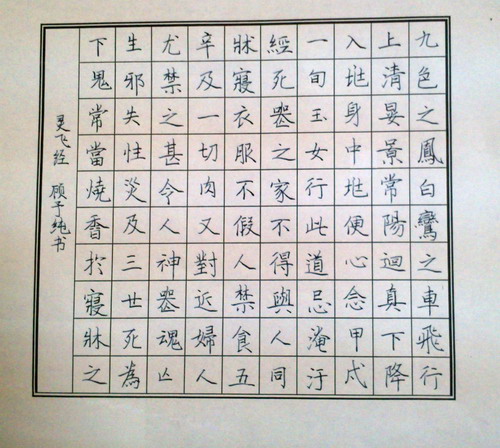 九色之鳳白鸞之車飛行
上清晏景常陽迴真下降
入兆身中兆便心念甲戌
一旬玉女行此道忌淹汙
經死喪之家不得與人同
牀寢衣服不假人禁食五
辛及一切肉又對近婦人
尤禁之甚令人神喪魂亡
生邪失性災及三世死為
下鬼常當燒香於寢牀之
灵飞经 顾子纯书